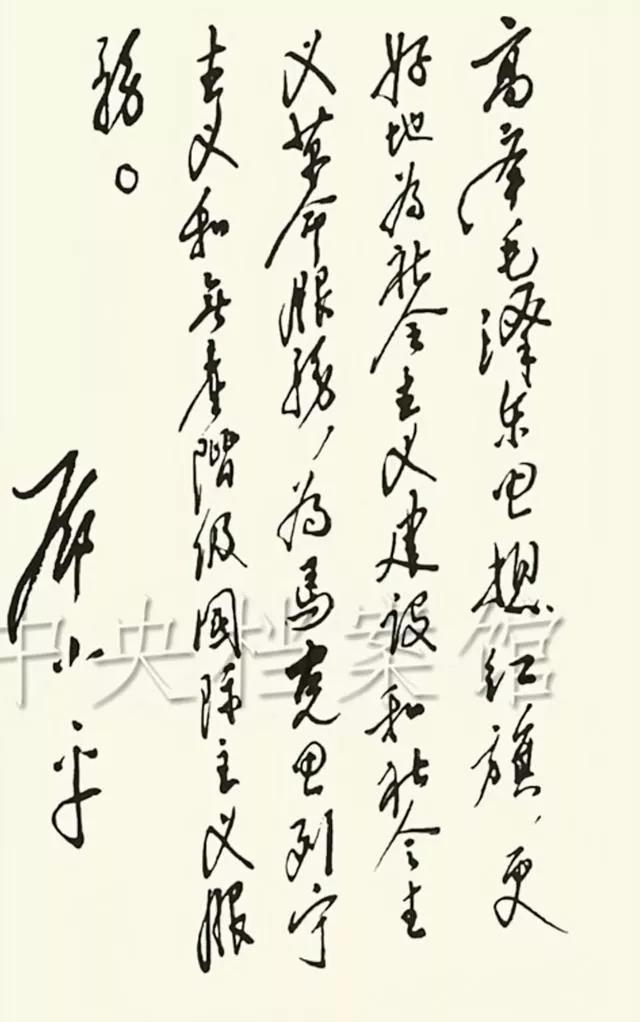 高举毛澤东思想红旗，更
好地为社会主义建设和社会主
义革命服務，为馬克思列宁
主义和无產階级国际主义服
務。
邓小平
中央档案馆